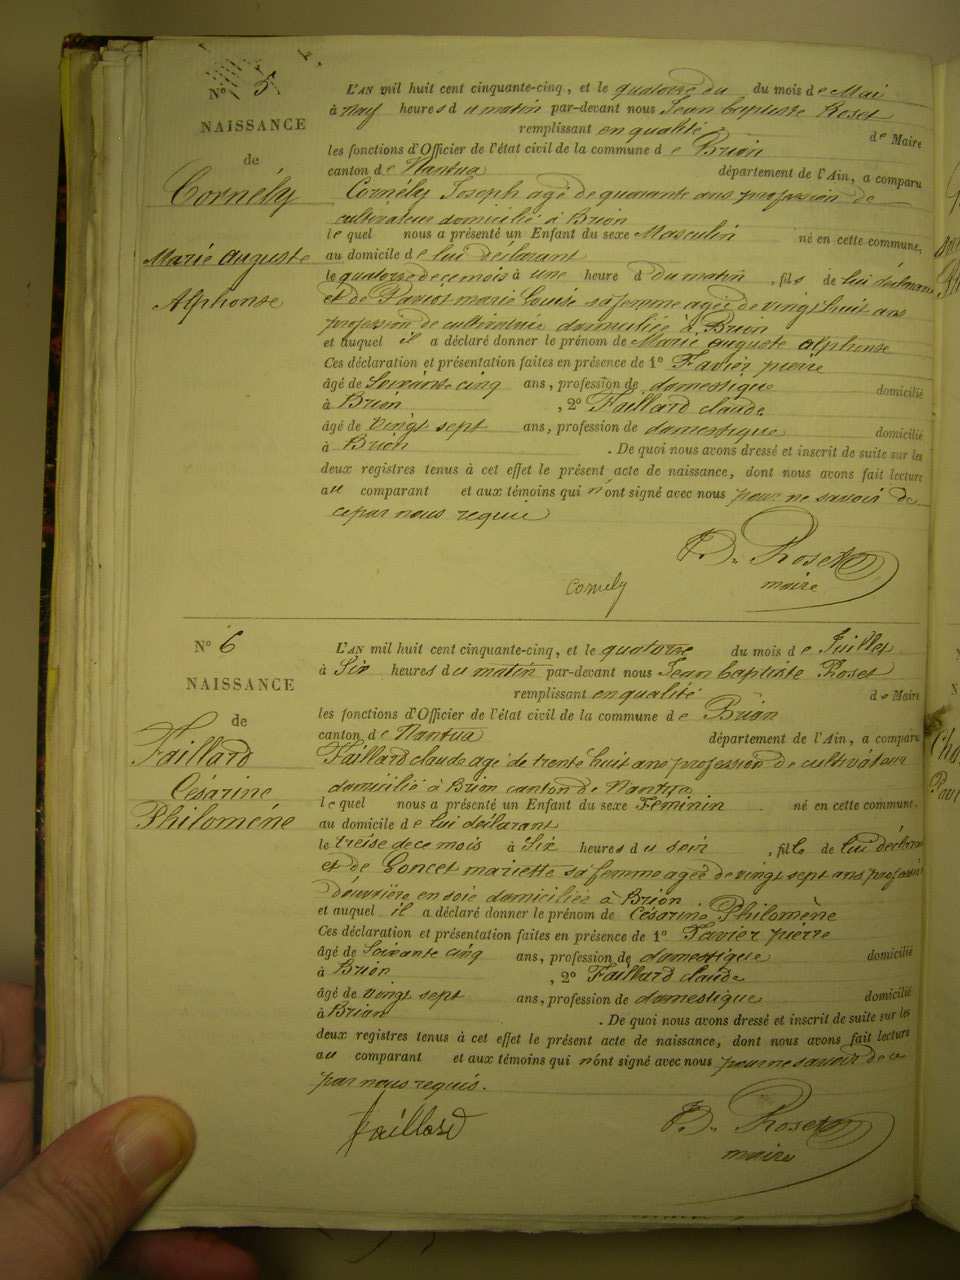 N° 5
NAISSANCE
de
Cornély
Marie Auguste
Alphonse
L'AN mil huit cent cinquante-cinq, et le quatorze du du mois de Mai
à neuf heures du matin par-devant nous Jean baptiste Roset
remplissant en qualité de Maire
les fonctions d'Officier de l'état civil de la commune de Brion
canton de Nantua département de l'Ain, a comparu
Cornély Joseph agé de quarante ans profession de
cultivateur domicilié à Brion
lequel nous a présenté un Enfant du sexe Masculin né en cette commune,
au domicile de lui déclarant
le quatorze de ce mois à une heure d du matin, fils de lui déclarant
et de marie Louise sa femme agée de vingt huit ans
profession de cultivatrice domiciliée à Brion
et auquel il a déclaré donner le prénom de Marie auguste alphonse
Ces déclaration et présentation faites en présence de 1° Favier pierre
âgé de Soixante cinq ans, profession de domestique domicilié
à Brion, 2° Faillard claude
âgé de vingt sept ans, profession de domestique domicilié
à Brion. De quoi nous avons dressé et inscrit de suite sur les
deux registres tenus à cet effet le présent acte de naissance, dont nous avons fait lecture
au comparant et aux témoins qui n'ont signé avec nous pour ne savoir de
ce par nous requis
J. B. Roset
maire
Cornely
N° 6
NAISSANCE
de
Faillard
Césarine
Philomène
L'AN mil huit cent cinquante-cinq, et le quatorze du mois de Juillet
à Six heures du matin par-devant nous Jean baptiste Roset
remplissant en qualité de Maire
les fonctions d'Officier de l'état civil de la commune de Brion
canton de Nantua département de l'Ain, a comparu
Faillard claude agé de trente huit ans profession de cultivateur
domicilié à Brion canton de Nantua
lequel nous a présenté un Enfant du sexe Féminin né en cette commune.
au domicile de lui déclarant
le treise de ce mois à Six heures du soir, fille de lui déclarant
et de Goncet mariette sa femme agée de vingt sept ans profession
d'ouvrière en soie domiciliée à Brion
et auquel il a déclaré donner le prénom de Césarine Philomène
Ces déclaration et présentation faites en présence de 1° Favier pierre
âgé de Soixante cinq ans, profession de domestique domicilié
à Brion, 2° Faillard claude
âgé de vingt sept ans, profession de domestique domicilié
à Brion. De quoi nous avons dressé et inscrit de suite sur les
deux registres tenus à cet effet le présent acte de naissance, dont nous avons fait lecture
au comparant et aux témoins qui n'ont signé avec nous pour ne savoir de ce
par nous requis.
faillard
J. B. Roset
maire